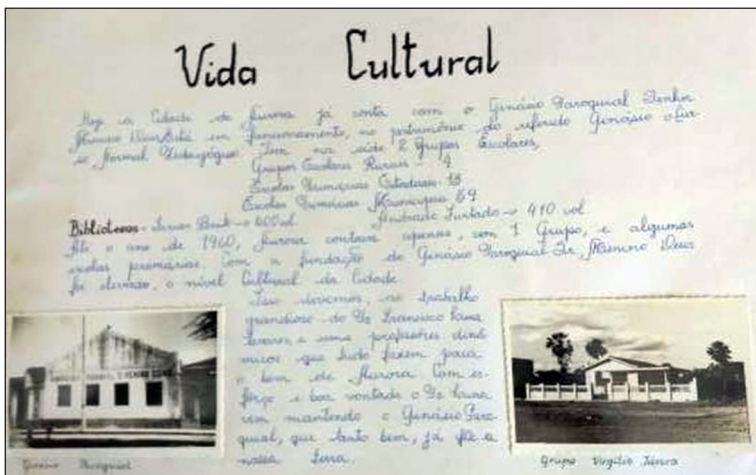 Vida Cultural
Hoje a Cidade de Aurora já conta com o Ginásio Paroquial Senhor
Menino Deus, em funcionamento, no patrimônio do referido Ginásio o Cur-
so Normal Pedagógico. Tem na sede 2 Grupos Escolares,
Grupos Escolares Rurais - 4
Escolas Primárias Estaduais 13
Escolas Primárias Municipais 59
Bibliotecas - 600 vol. Andrade Furtado → 410 vol.
Até o ano de 1960, Aurora contava apenas, com 1 Grupo, e algumas
escolas primárias. Com a fundação do Ginásio Paroquial Sr. Menino Deus
foi elevado, o nível Cultural da Cidade.
Isso devemos, ao trabalho
grandioso do Pe Francisco Luna
Tavares, e uma professores dinâ
micos que tudo fazem para
o bem de Aurora. Com es-
forço e boa vontade o Pe Luna
vem mantendo o Ginásio Paro-
quial, que tanto bem, já fêz a
nossa terra.
Ginásio Paroquial
Grupo Virgílio Távora